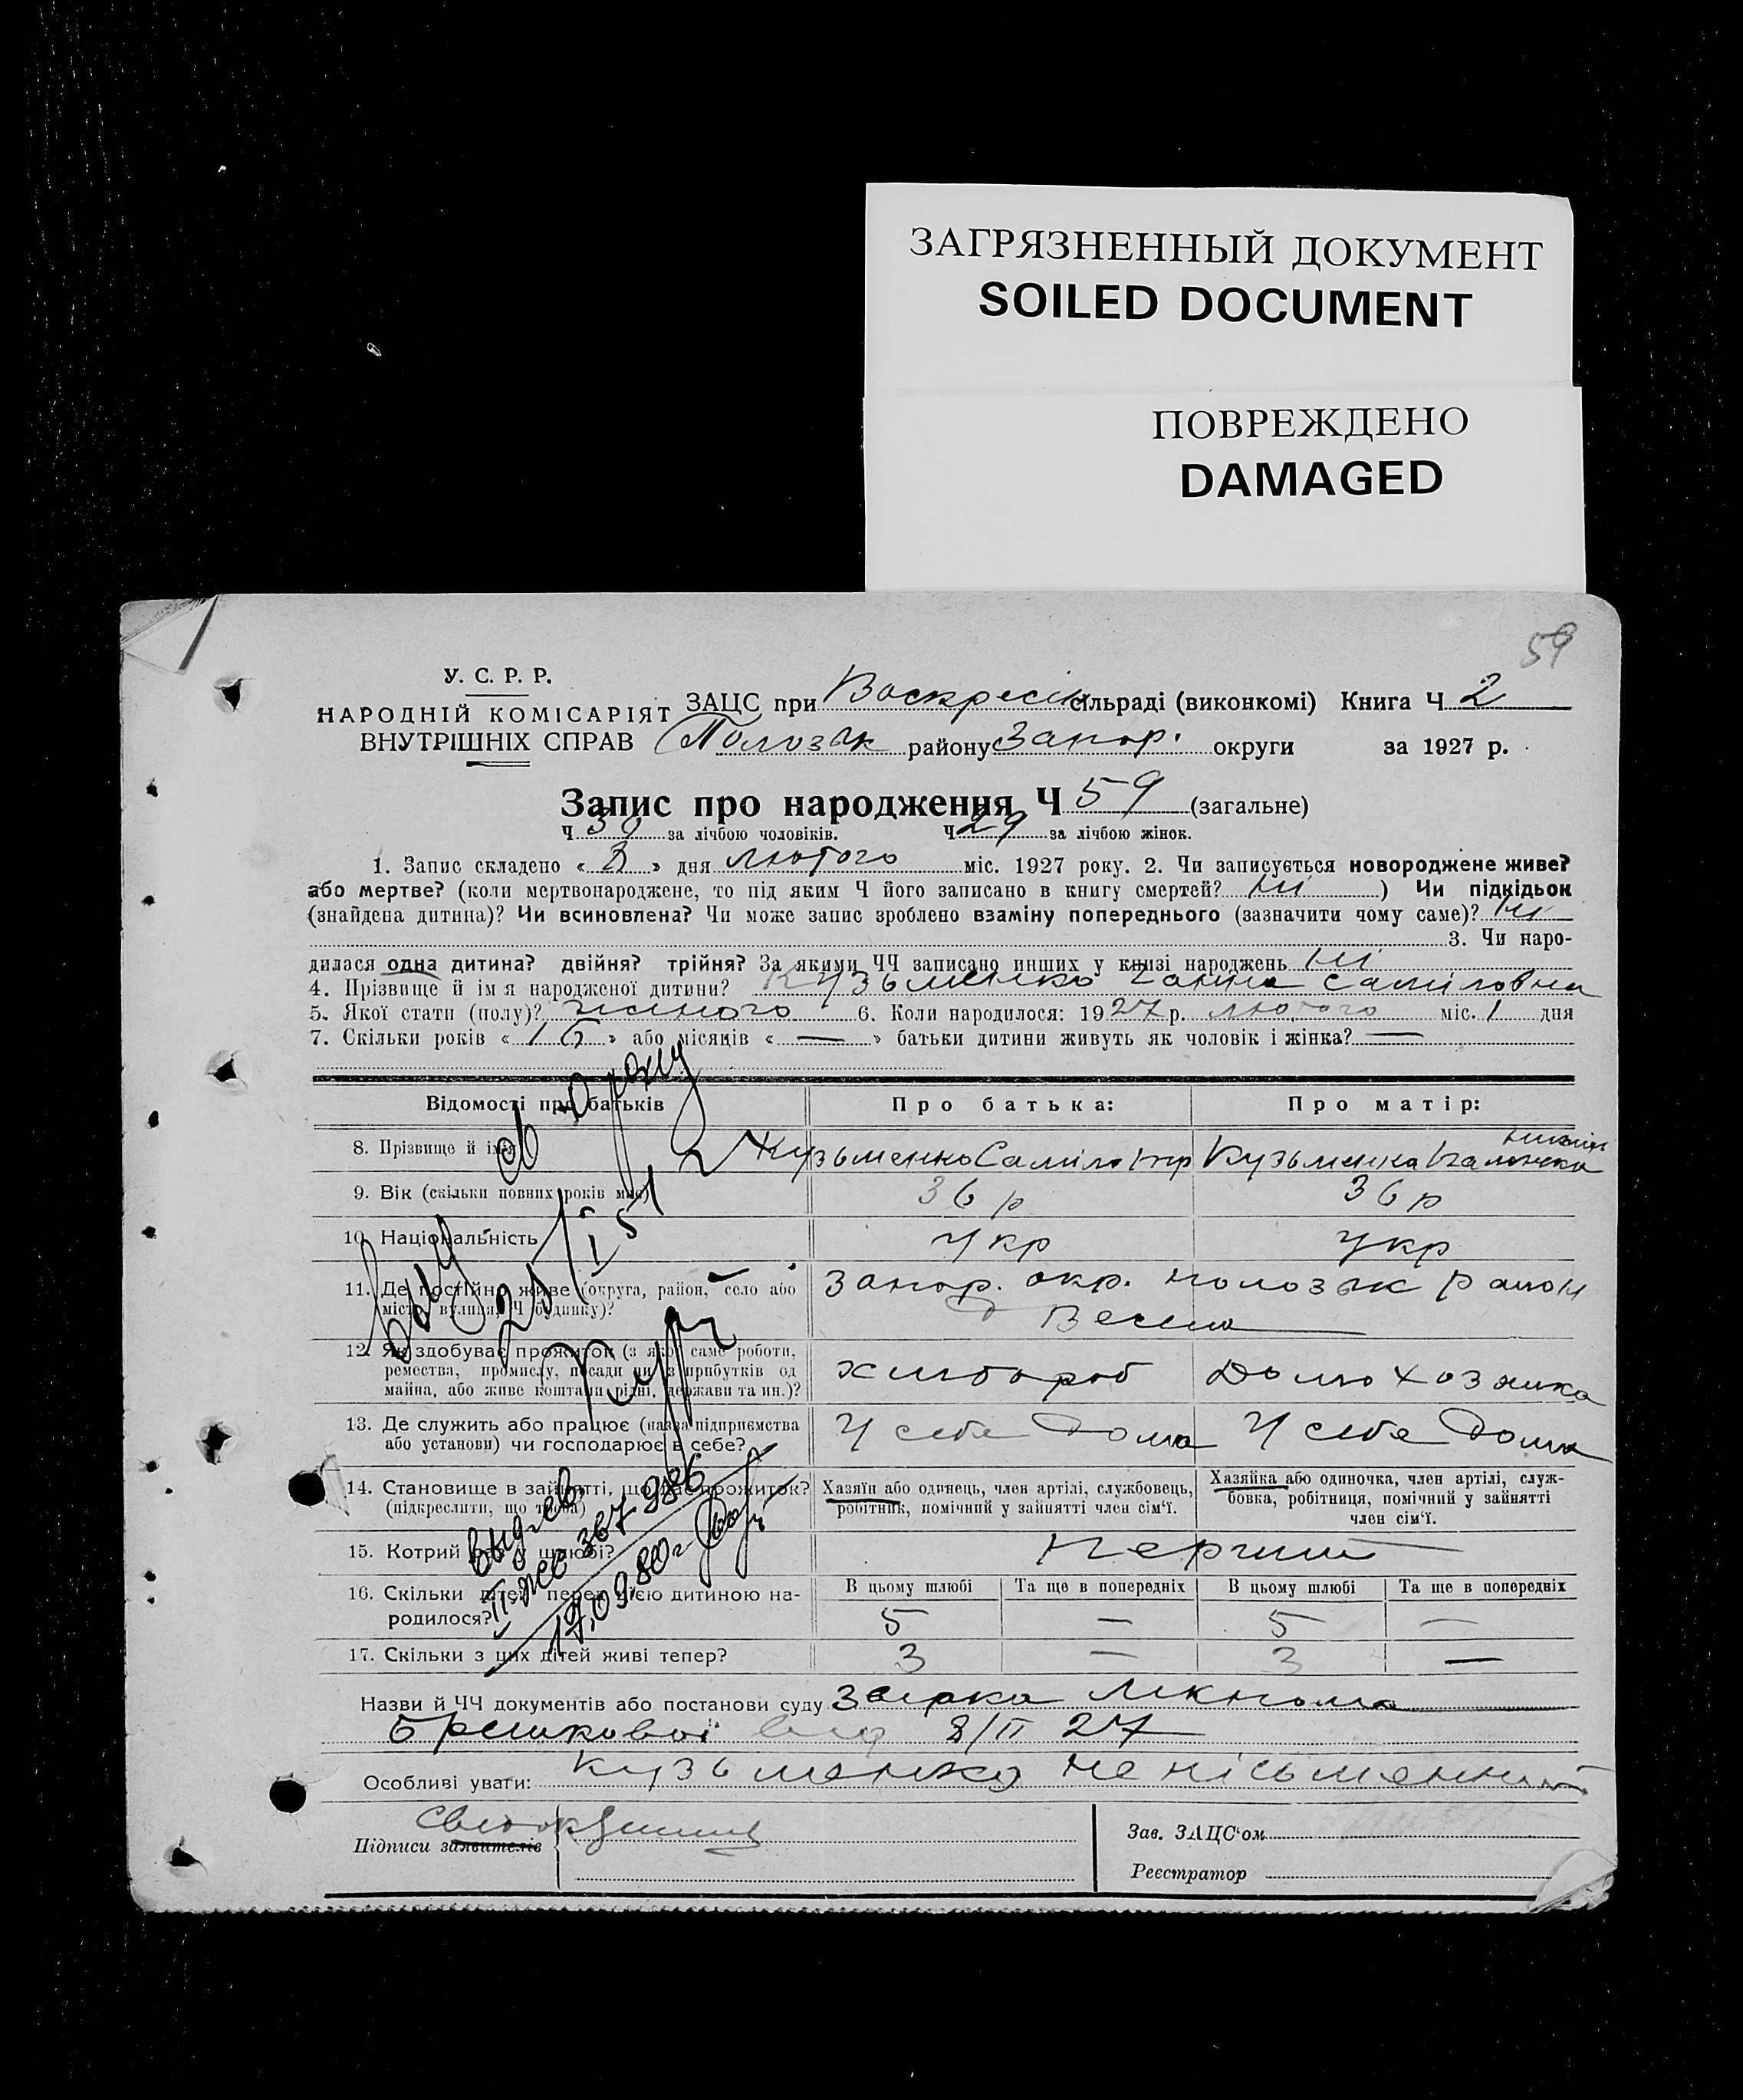 ЗАГРЯЗНЕННЫЙ ДОКУМЕНТ
SOILED DOCUMENT
ПОВРЕЖДЕНО
DAMAGED
59
У. С. Р. Р.
НАРОДНІЙ КОМІСАРІЯТ
ВНУТРІШНІХ СПРАВ
ЗАЦС при Воскресін сільраді (виконкомі) Книга Ч 2
Полозьк району Запор. округи за 1927 р.
Запис про народження Ч 59 (загальне)
Ч 30 за лічбою чоловіків. Ч 29 за лічбою жінок.
1. Запис складено « 8 » дня лютого міс. 1927 року. 2. Чи записується новороджене живе?
або мертве? (коли мертвонароджене, то під яким Ч його записано в книгу смертей? ні ) Чи підкідьок
(знайдена дитина)? Чи всиновлена? Чи може запис зроблено взаміну попереднього (зазначити чому саме)? ні
3. Чи наро-
дилася одна дитина? двійня? трійня? За якими ЧЧ записано инших у книзі народжень ні
4. Прізвище й ім я народженої дитини? Кузьменко Ганна Саміловна
5. Якої стати (полу)? жиного 6. Коли народилося: 1927 р. лютого міс. 1 дня
7. Скільки років « 16 » або місяців « — » батьки дитини живуть як чоловік і жінка? —
Відомості про батьків Про батька: Про матір:
8. Прізвище й імя Кузьменко Саміло Кузьменка
9. Вік (скільки повних років має) 36 р 36 р
10. Національність Укр Укр
11. Де постійно живе (округа, район, село або
місто, вулиця, Ч будинку)?
Запор. окр. полозьк район
Весела
12. Як здобуває прожиток (з якої саме роботи,
ремества, промислу, посади чи з прибутків од
майна, або живе коштами рідні, держави та ин.)?
хлібороб Домохозяйка
13. Де служить або працює (назва підприємства
або установи) чи господарює в себе?
У себе дома У себе дома
14. Становище в зайнятті, що дає прожиток?
(підкреслити, що треба)
Хазяїн або одинець, член артілі, службовець,
робітник, помічний у зайнятті член сім'ї.
Хазяйка або одиночка, член артілі, служ-
бовка, робітниця, помічний у зайнятті
член сім'ї.
15. Котрий раз у шлюбі? Перший
16. Скільки дітей перед цією дитиною на-
родилося?
В цьому шлюбі Та ще в попередніх В цьому шлюбі Та ще в попередніх
5 — 5 —
17. Скільки з цих дітей живі тепер? 3 — 3 —
Назви й ЧЧ документів або постанови суду
від 8/II 27
Особливі уваги: Кузьменко не пісьменний
Підписи заявителів
Зав. ЗАЦС'ом
Реєстратор
367986
17.09.80г.